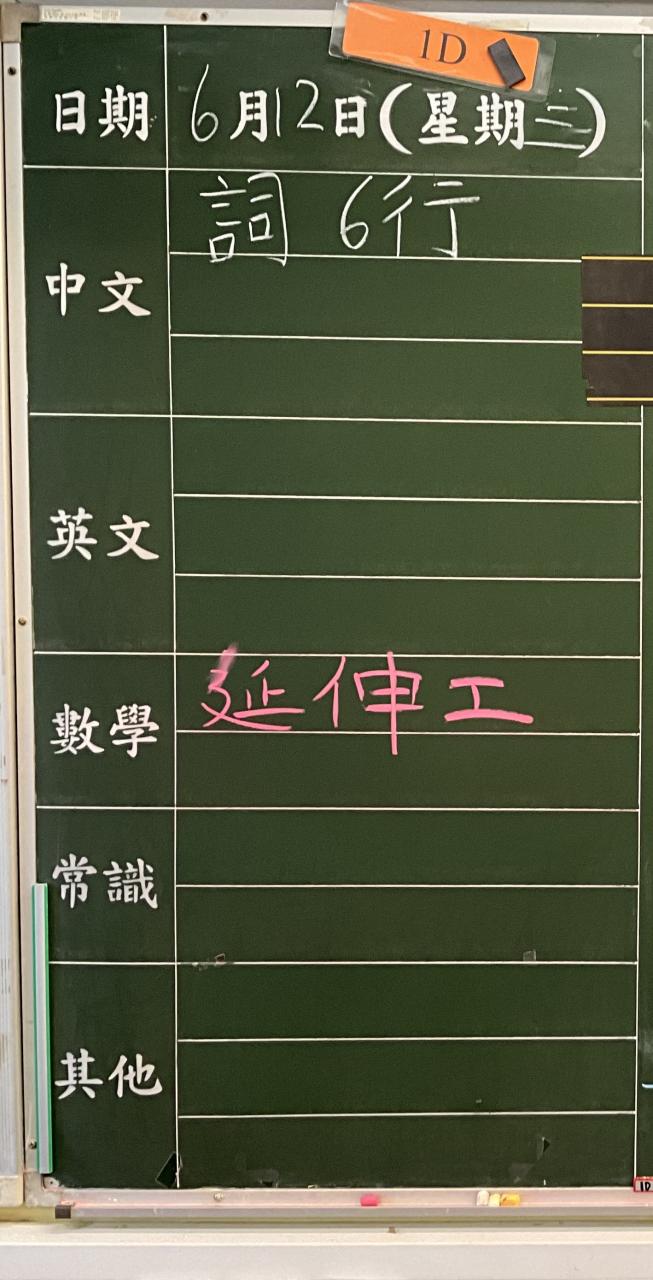 1D
日期 6月12日(星期三)
中文 詞 6行
英文
數學 延伸工
常識
其他
1D